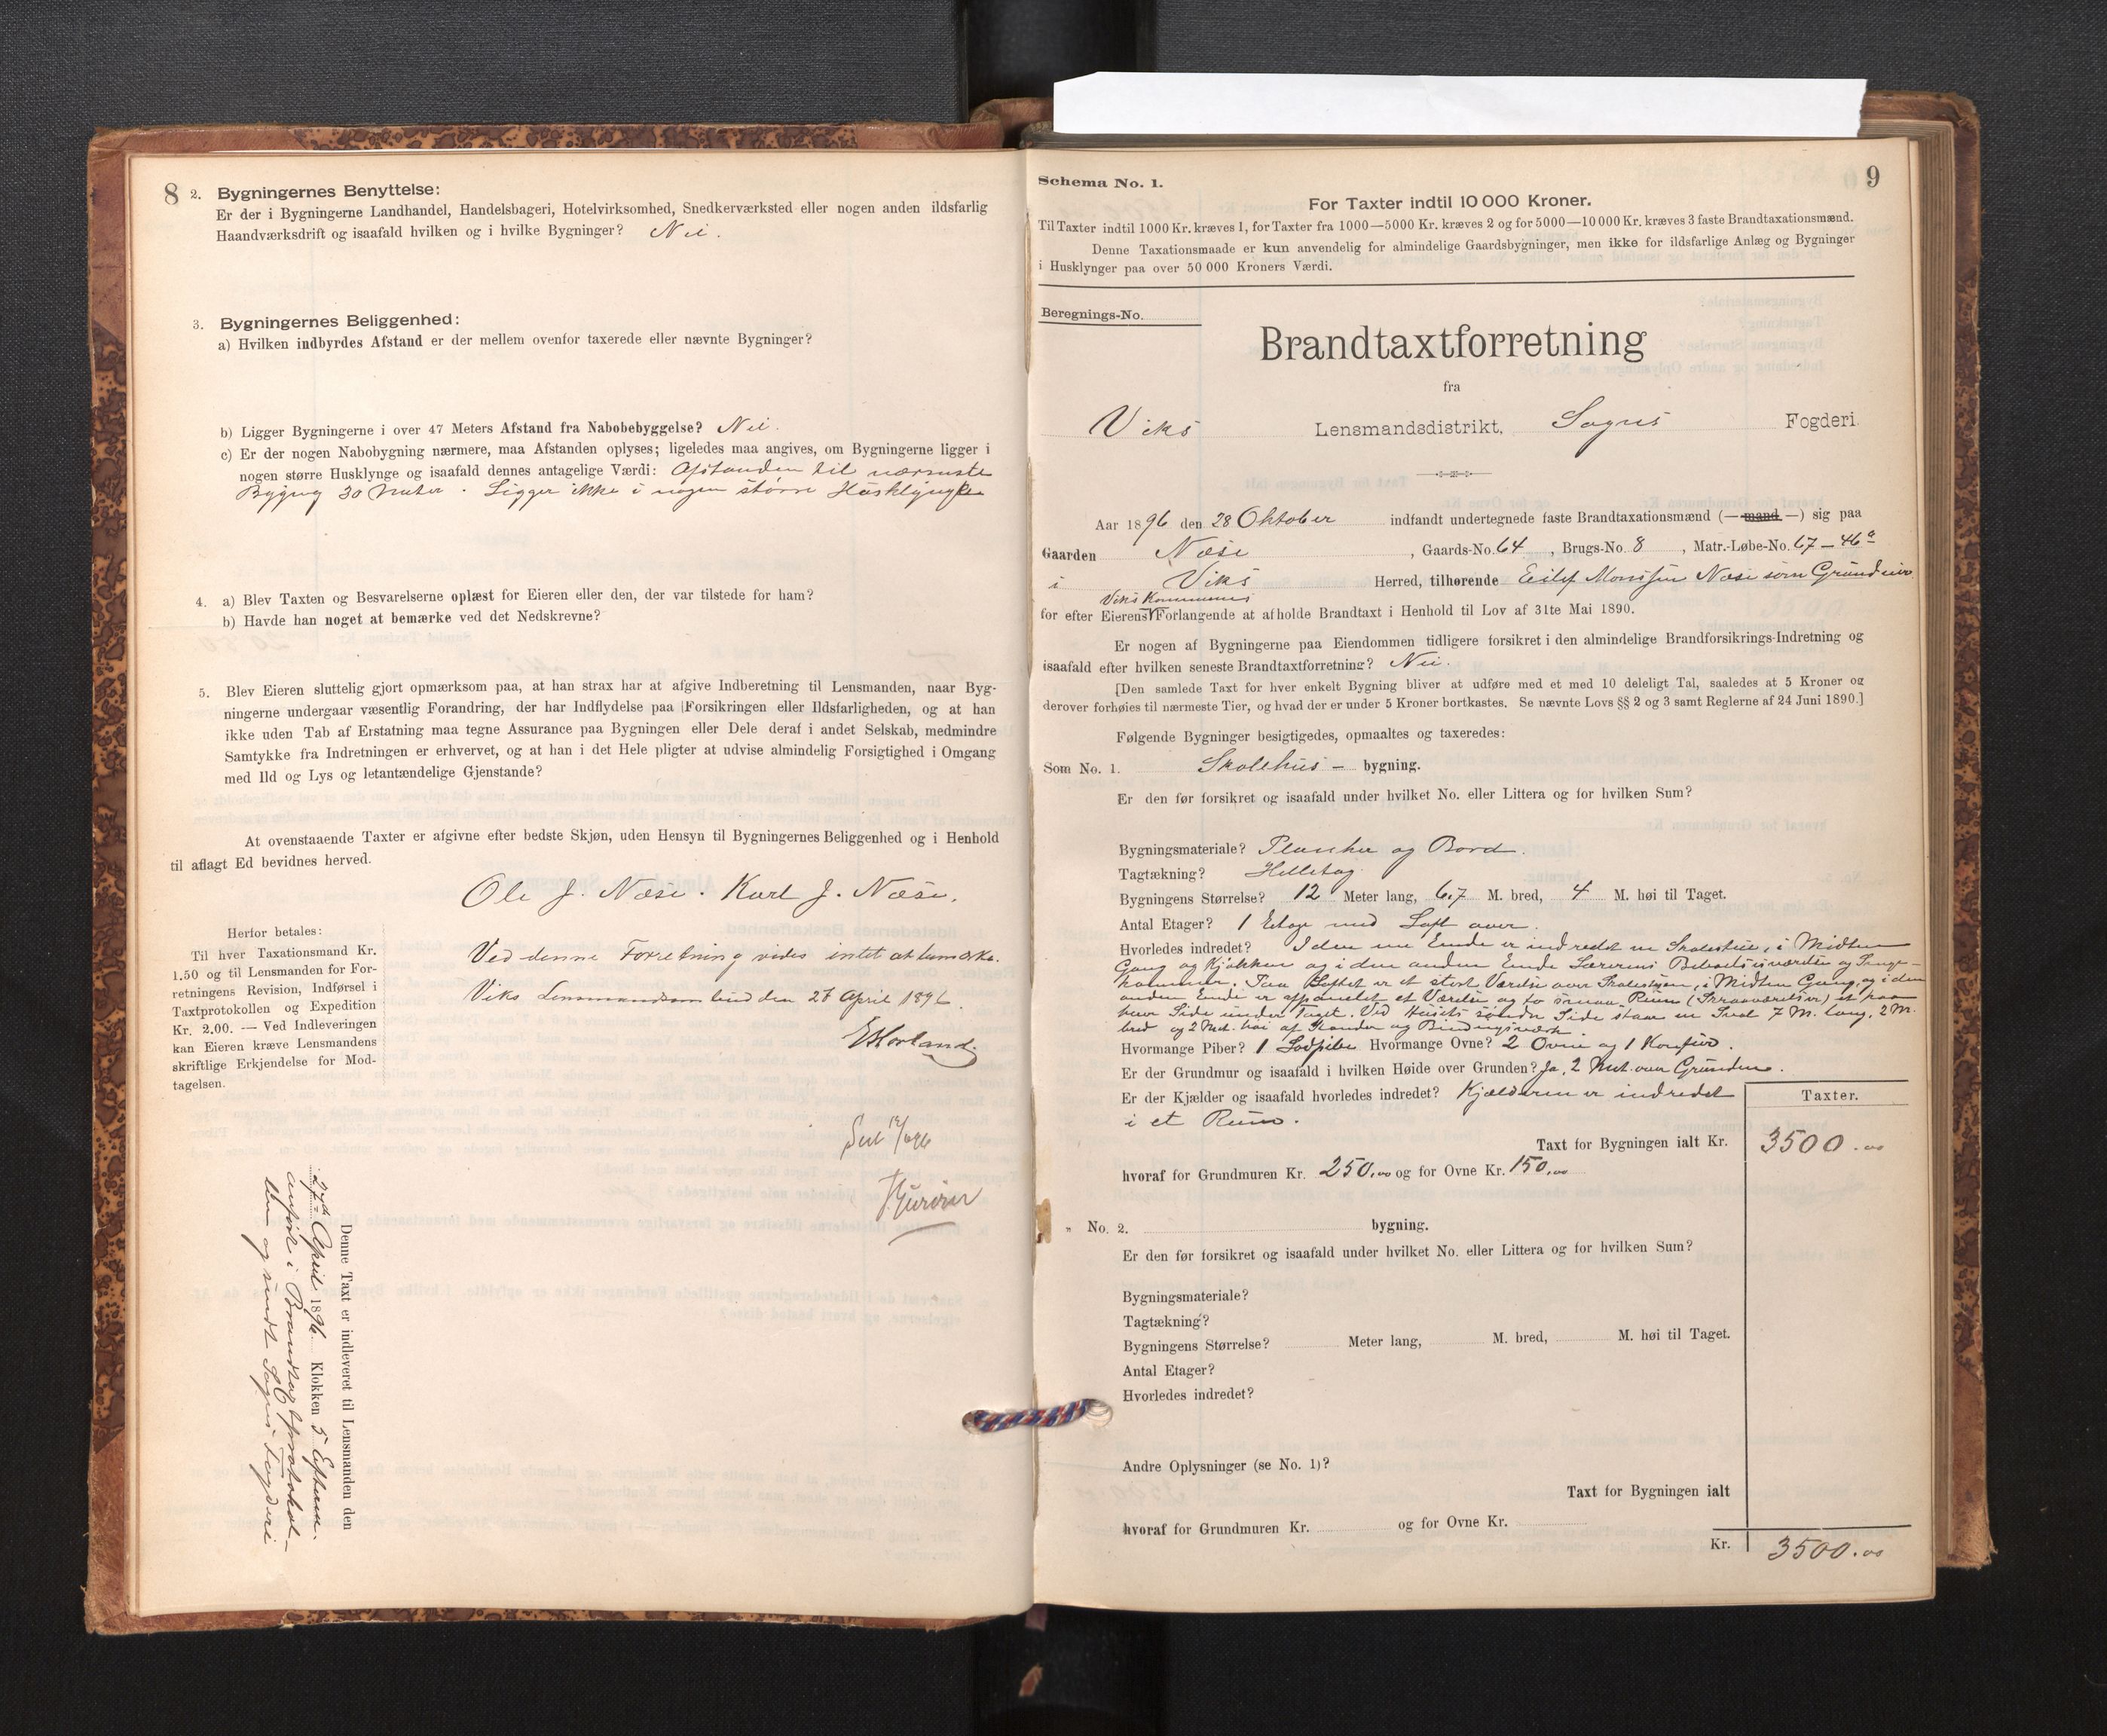 8
2. Bygningernes Benyttelse:
Er der i Bygningerne Landhandel, Handelsbageri, Hotelvirksomhed, Snedkerværksted eller nogen anden ildsfarlig
Haandværksdrift og isaafald hvilken og i hvilke Bygninger? Nei.
3. Bygningernes Beliggenhed:
a) Hvilken indbyrdes Afstand er der mellem ovenfor taxerede eller nævnte Bygninger?
b) Ligger Bygningerne i over 47 Meters Afstand fra Nabobebyggelse? Nei.
c) Er der nogen Nabobygning nærmere, maa Afstanden oplyses; ligeledes maa angives, om Bygningerne ligger i
nogen større Husklynge og isaafald dennes antagelige Værdi: Afstanden til nærmeste
Bygng 30 Meter. Ligger ikke i nogen større Husklynge
4. a) Blev Taxten og Besvarelserne oplæst for Eieren eller den, der var tilstede for ham?
b) Havde han noget at bemærke ved det Nedskrevne?
5. Blev Eieren sluttelig gjort opmærksom paa, at han strax har at afgive Indberetning til Lensmanden, naar Byg-
ningerne undergaar væsentlig Forandring, der har Indflydelse paa Forsikringen eller Ildsfarligheden, og at han
ikke uden Tab af Erstatning maa tegne Assurance paa Bygningen eller Dele deraf i andet Selskab, medmindre
Samtykke fra Indretningen er erhvervet, og at han i det Hele pligter at udvise almindelig Forsigtighed i Omgang
med Ild og Lys og letantændelige Gjenstande?
At ovenstaaende Taxter er afgivne efter bedste Skjøn, uden Hensyn til Bygningernes Beliggenhed og i Henhold
til aflagt Ed bevidnes herved.
Ole J. Næse. Karl J. Næse.
Herfor betales:
Til hver Taxationsmand Kr.
1.50 og til Lensmanden for For-
retningens Revision, Indførsel i
Taxtprotokollen og Expedition
Kr. 2.00. — Ved Indleveringen
kan Eieren kræve Lensmandens
skriftlige Erkjendelse for Mod-
tagelsen.
Ved denne Forretning vides intet at bemærke.
Viks Lensmandsombud den 27 April 1896.
E Hovland.
Denne Taxt er indleveret til Lensmanden den
27de April 1896 Klokken 5 Efterm.
anført i Brandtaxtprotokol-
len og sendt Sogns Fogderi
9
Schema No. 1.
For Taxter indtil 10 000 Kroner.
Til Taxter indtil 1000 Kr. kræves 1, for Taxter fra 1000—5000 Kr. kræves 2 og for 5000—10 000 Kr. kræves 3 faste Brandtaxationsmænd.
Denne Taxationsmaade er kun anvendelig for almindelige Gaardsbygninger, men ikke for ildsfarlige Anlæg og Bygninger
i Husklynger paa over 50 000 Kroners Værdi.
Beregnings-No.
Brandtaxtforretning
fra
Viks Lensmandsdistrikt, Sogns Fogderi
Aar 1896 den 28 Oktober indfandt undertegnede faste Brandtaxationsmænd (—mand—) sig paa
Gaarden Næse, Gaards-No. 64, Brugs-No. 8, Matr.-Løbe-No. 67 – 46a
i Viks Herred, tilhørende Eilef Monssen Næse som Grundeier
Viks Kommunes
for efter Eierens Forlangende at afholde Brandtaxt i Henhold til Lov af 31te Mai 1890.
Er nogen af Bygningerne paa Eiendommen tidligere forsikret i den almindelige Brandforsikrings-Indretning og
isaafald efter hvilken seneste Brandtaxtforretning? Nei.
[Den samlede Taxt for hver enkelt Bygning bliver at udføre med et med 10 deleligt Tal, saaledes at 5 Kroner og
derover forhøies til nærmeste Tier, og hvad der er under 5 Kroner bortkastes. Se nævnte Lovs §§ 2 og 3 samt Reglerne af 24 Juni 1890.]
Følgende Bygninger besigtigedes, opmaaltes og taxeredes:
Som No. 1. Skolehus – bygning.
Er den før forsikret og isaafald under hvilket No. eller Littera og for hvilken Sum?
Bygningsmateriale? Planker og Bord.
Tagtækning? Helletag.
Bygningens Størrelse? 12 Meter lang, 6,7 M. bred, 4 M. høi til Taget.
Antal Etager? 1 Etage med Loft over.
Hvorledes indredet? I den ene Ende er indredet en Skolestue, i Midten
Gang og Kjøkken og i den anden Ende Lærerens Beboelsesværelse og Senge-
kammer. Paa Loftet er et stort Værelse over Skolestuen, i Midten Gang, og i den
anden Ende er afpanelet et Værelse og to smaa Rum (Skraaværelser) et paa
hver Side under Taget. Ved Husets søndre Side staar en Sval 7 M. lang, 2 M.
bred og 2 Met. høi af Stander og Bindingsværk.
Hvormange Piber? 1 Lodpibe Hvormange Ovne? 2 Ovne og 1 Komfur.
Er der Grundmur og isaafald i hvilken Høide over Grunden? Ja, 2 Met. over Grunden.
Er der Kjælder og isaafald hvorledes indredet? Kjælderen er indredet
i et Rum.
Taxter.
Taxt for Bygningen ialt Kr. 3500.00
hvoraf for Grundmuren Kr. 250,00 og for Ovne Kr. 150,00
„ No. 2. bygning.
Er den før forsikret og isaafald under hvilket No. eller Littera og for hvilken Sum?
Bygningsmateriale?
Tagtækning?
Bygningens Størrelse? Meter lang, M. bred, M. høi til Taget.
Antal Etager?
Hvorledes indredet?
Andre Oplysninger (se No. 1)?
Taxt for Bygningen ialt
hvoraf for Grundmuren Kr. og for Ovne Kr.
Kr. 3500.00